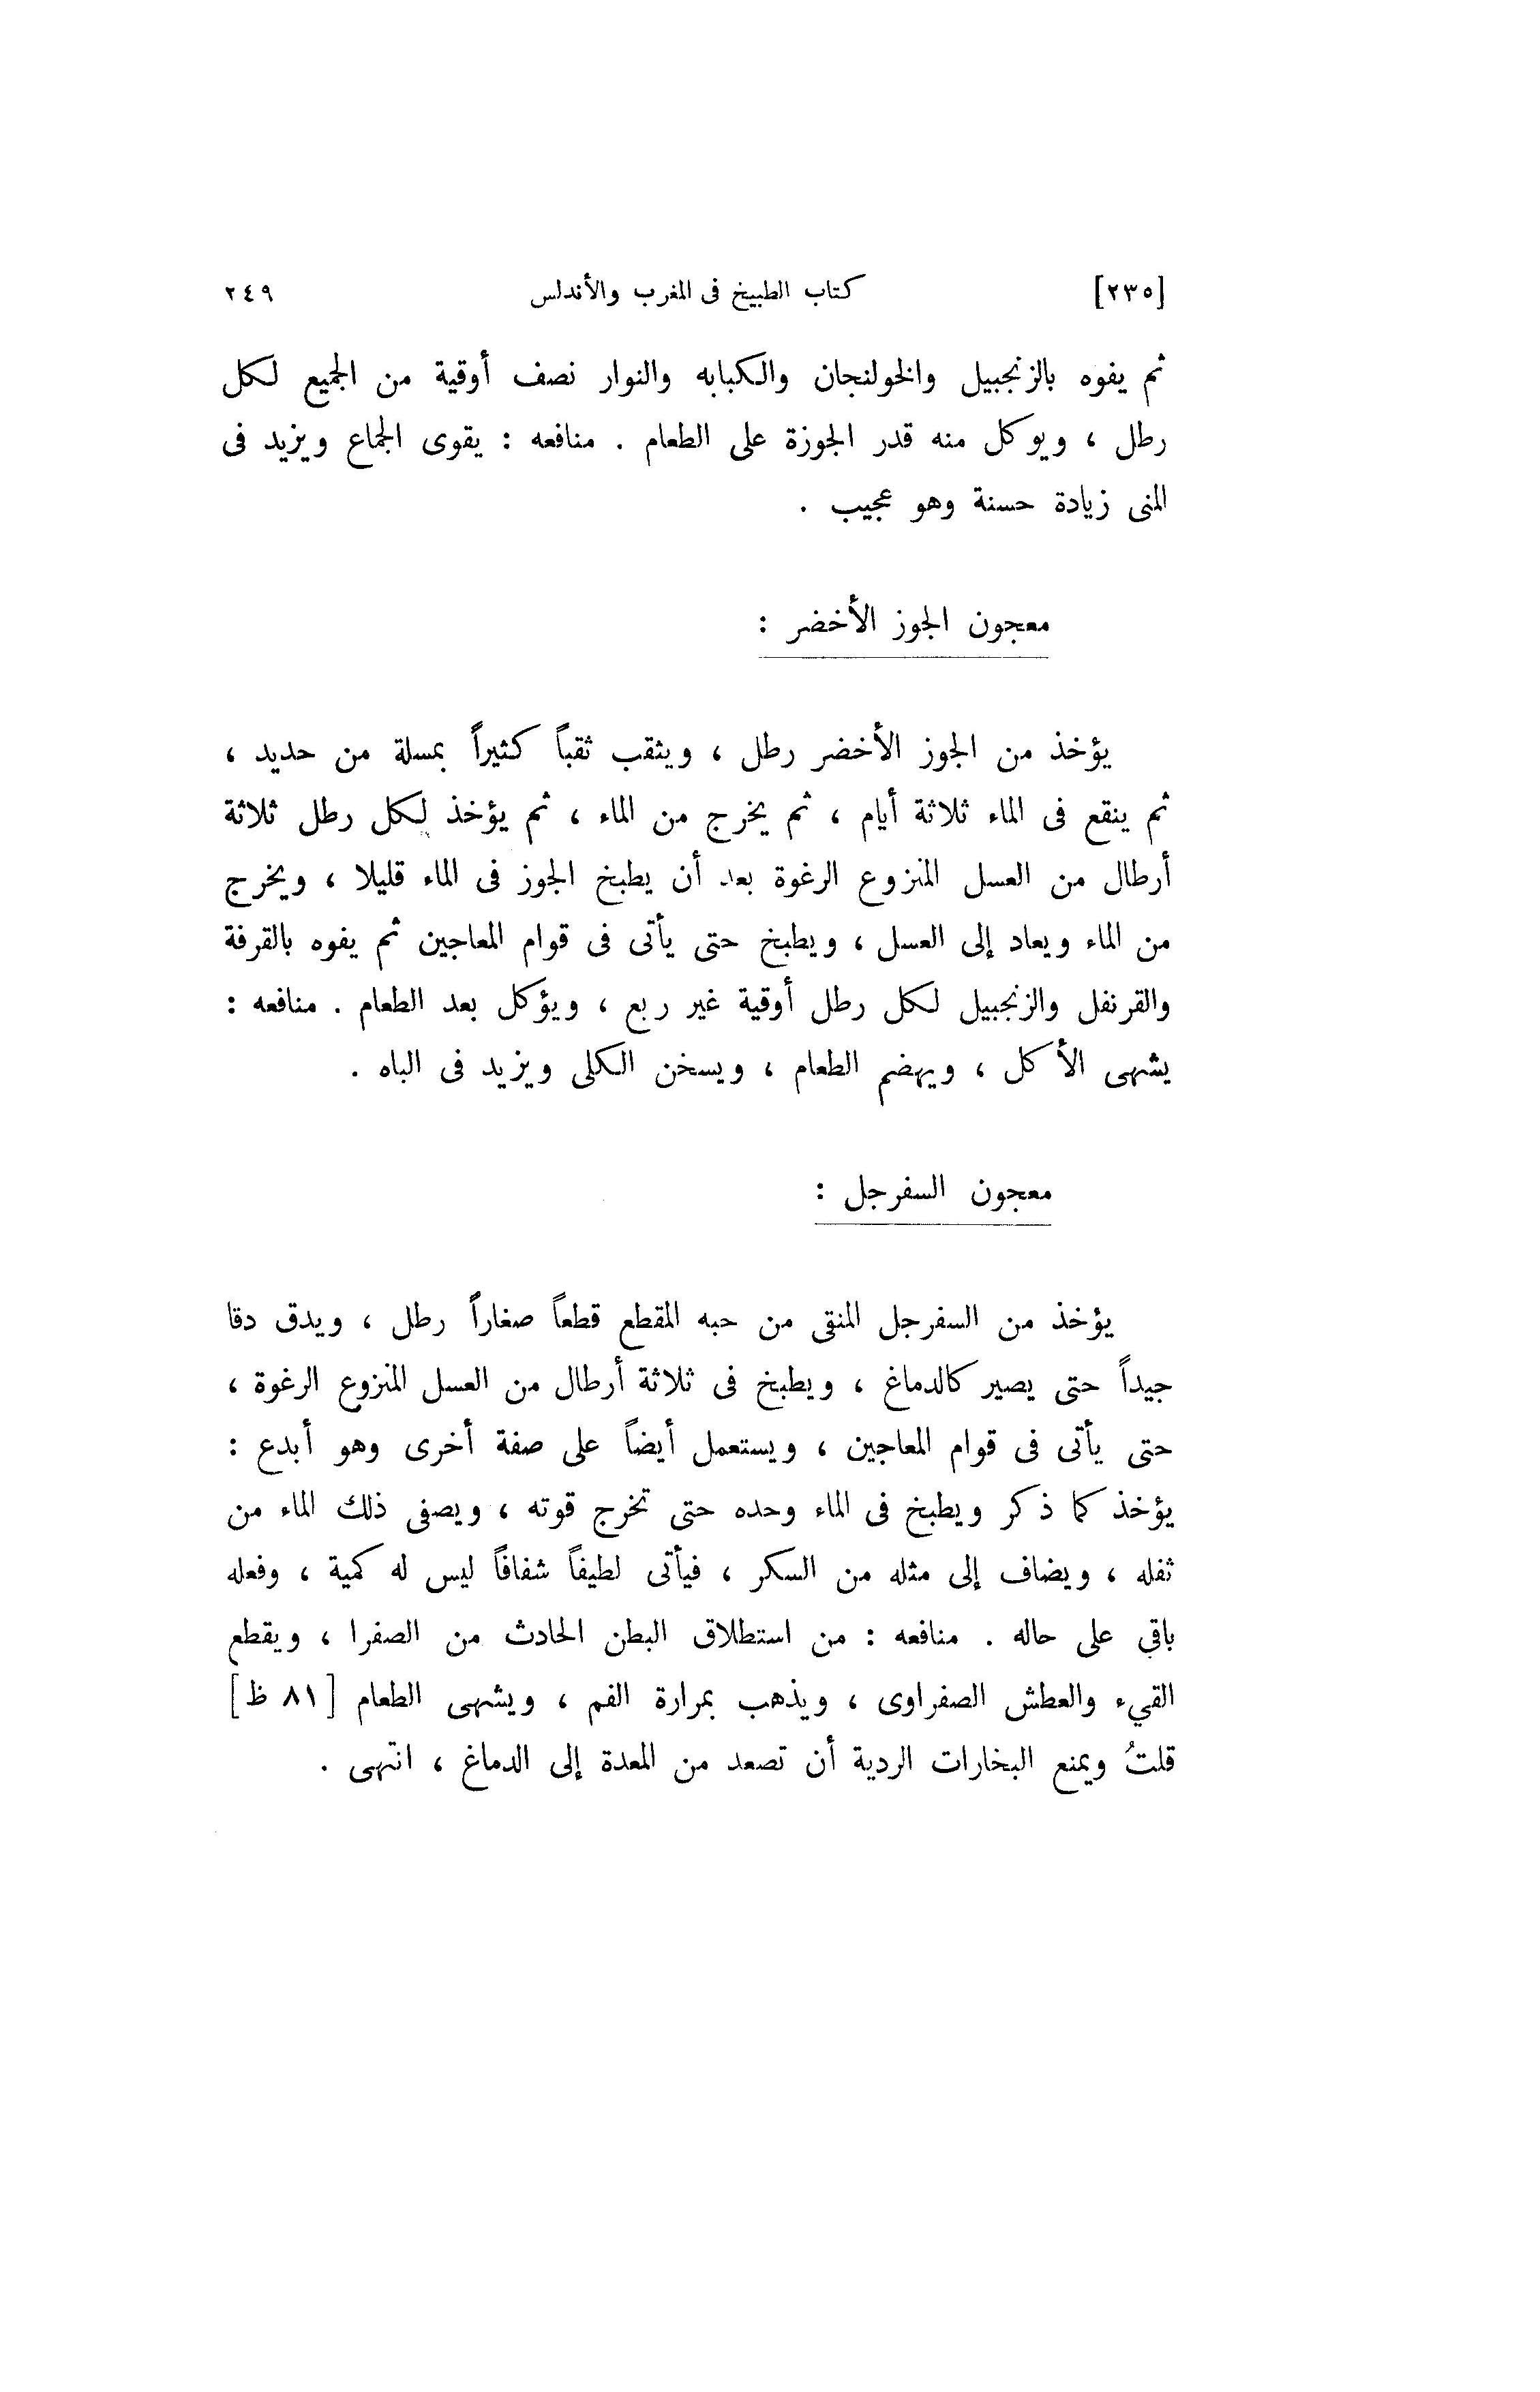 [٢٣٥] كتاب الطبيخ فى المغرب والأندلس ٢٤٩
ثم يفوه بالزنجبيل والخولنجان والكبابه والنوار نصف أوقية من الجميع لكل
رطل ، ويوكل منه قدر الجوزة على الطعام . منافعه : يقوى الجماع ويزيد فى
المنى زيادة حسنة وهو عجيب .
معجون الجوز الأخضر :
يؤخذ من الجوز الأخضر رطل ، ويثقب ثقباً كثيراً بمسلة من حديد ،
ثم ينقع فى الماء ثلاثة أيام ، ثم يخرج من الماء ، ثم يؤخذ لكل رطل ثلاثة
أرطال من العسل المنزوع الرغوة بعد أن يطبخ الجوز فى الماء قليلا ، ويخرج
من الماء ويعاد إلى العسل ، ويطبخ حتى يأتى فى قوام المعاجين ثم يفوه بالقرفة
والقرنفل والزنجبيل لكل رطل أوقية غير ربع ، ويؤكل بعد الطعام . منافعه :
يشهى الأكل ، ويهضم الطعام ، ويسخن الكلى ويزيد فى الباه .
معجون السفرجل :
يؤخذ من السفرجل المنقى من حبه المقطع قطعاً صغاراً رطل ، ويدق دقا
جيداً حتى يصير كالدماغ ، ويطبخ فى ثلاثة أرطال من العسل المنزوع الرغوة ،
حتى يأتى فى قوام المعاجين ، ويستعمل أيضاً على صفة أخرى وهو أبدع :
يؤخذ كما ذكر ويطبخ فى الماء وحده حتى تخرج قوته ، ويصفى ذلك الماء من
ثفله ، ويضاف إلى مثله من السكر ، فيأتى لطيفاً شفافاً ليس له كمية ، وفعله
باقي على حاله . منافعه : من استطلاق البطن الحادث من الصفرا ، ويقطع
القيء والعطش الصفراوى ، ويذهب بمرارة الفم ، ويشهى الطعام [٨١ ظ]
قلتُ ويمنع البخارات الردية أن تصعد من المعدة إلى الدماغ ، انتهى .